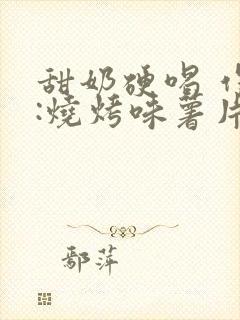 甜奶硬喝
:燒烤味薯片
鄢萍